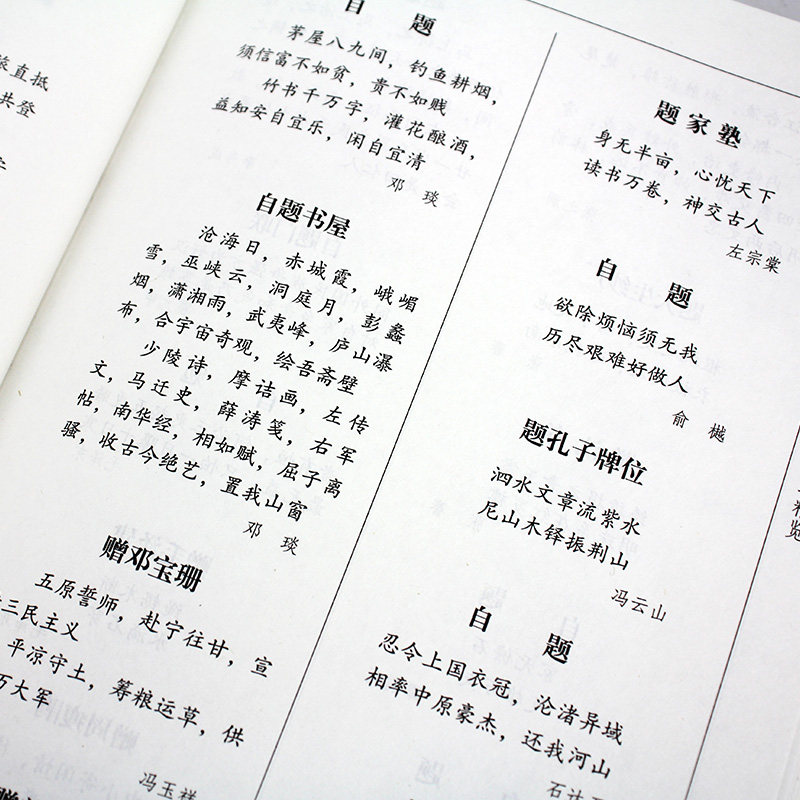 直抵
共登
自 题
茅屋八九间，钓鱼耕烟，
须信富不如贫，贵不如贱
竹书千万字，灌花酿酒，
益知安自宜乐，闲自宜清
邓 琰
自题书屋
沧海日，赤城霞，峨嵋
雪，巫峡云，洞庭月，彭蠡
烟，潇湘雨，武夷峰，庐山瀑
布，合宇宙奇观，绘吾斋壁
少陵诗，摩诘画，左传
文，马迁史，薛涛笺，右军
帖，南华经，相如赋，屈子离
骚，收古今绝艺，置我山窗
邓 琰
赠邓宝珊
五原誓师，赴宁往甘，宣
三民主义
平凉守土，筹粮运草，供
万大军
冯玉祥
题家塾
身无半亩，心忧天下
读书万卷，神交古人
左宗棠
自 题
欲除烦恼须无我
历尽艰难好做人
俞 樾
题孔子牌位
泗水文章流紫水
尼山木铎振荆山
冯云山
自 题
忍令上国衣冠，沦渚异域
相率中原豪杰，还我河山
石达
精览